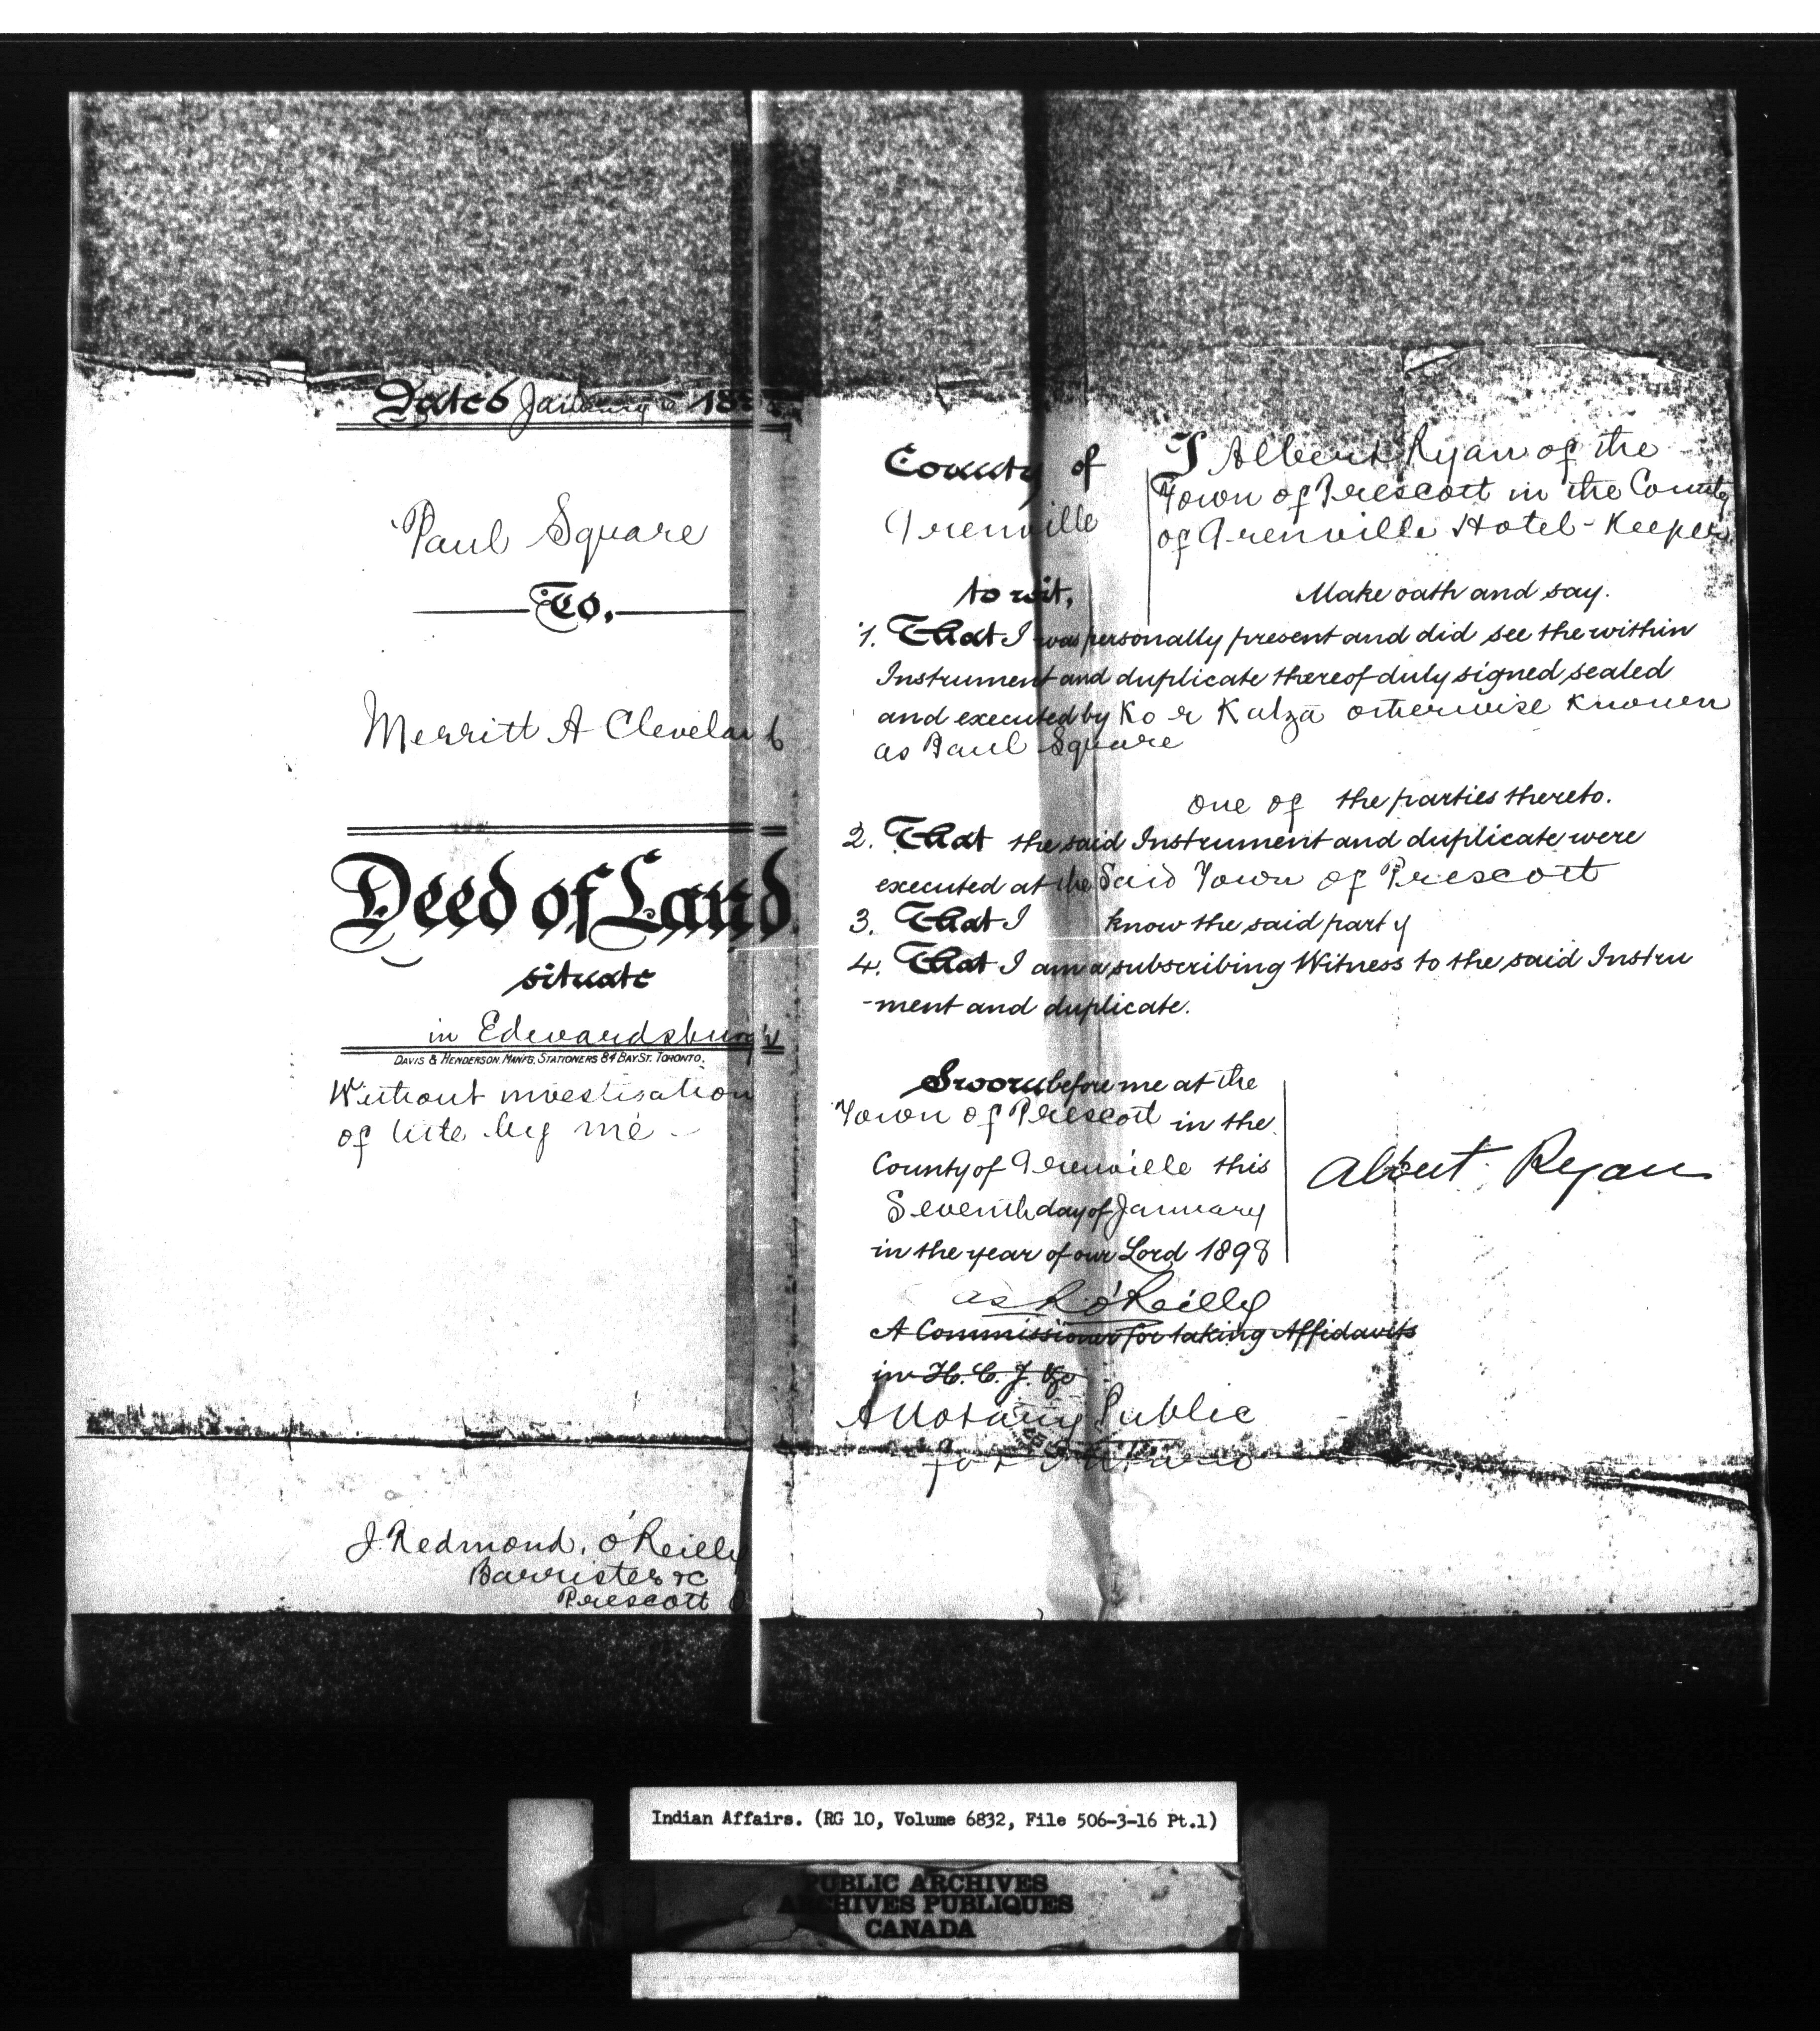 Dated January 6 18
Paul Square
To.
Merritt A Cleveland
Deed of Land
situate
in Edwardsburgh
DAVIS & HENDERSON. MANFG. STATIONERS 84 BAY ST. TORONTO.
Without investigation
of title by me
J. Redmond. O'Reilly
Barrister &c
Prescott
County of
Grenville
to wit,
I Albert Ryan of the
Town of Prescott in the County
of Grenville Hotel-Keeper
Make oath and say.
1. That I was personally present and did see the within
Instrument and duplicate thereof duly signed sealed
and executed by Ko r Kalza otherwise known
as Paul Square
one of the parties thereto.
2. That the said Instrument and duplicate were
executed at the Said Town of Prescott
3. That I know the said party
4. That I am a subscribing Witness to the said Instru
-ment and duplicate.
Sworn before me at the
Town of Prescott in the
County of Grenville this
Seventh day of January
in the year of our Lord 1898
Albert Ryan
R O'Reilly
A Commissioner for taking Affidavits
in H. C. J. &c
A Notary Public
for Ontario
Indian Affairs. (RG 10, Volume 6832, File 506-3-16 Pt.1)
PUBLIC ARCHIVES
ARCHIVES PUBLIQUES
CANADA